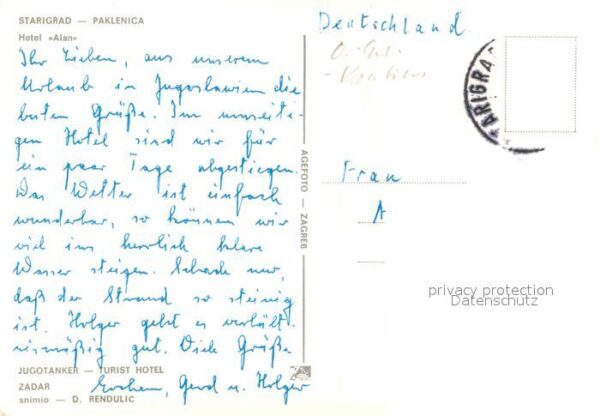 STARIGRAD — PAKLENICA
Hotel »Alan«
Ihr Lieben, aus unserem
Urlaub in Jugoslawien die
besten Grüße. Im umseiti-
gen Hotel sind wir für
ein paar Tage abgestiegen.
Das Wetter ist einfach
wunderbar, so können wir
viel ins herrlich klare
Wasser steigen. Schade nur,
daß der Strand so steinig
ist. Holger geht es verhält-
nismäßig gut. Viele Grüße
JUGOTANKER — TURIST HOTEL
ZADAR
Gerd u. Holger
snimio — D. RENDULIĆ
AGEFOTO — ZAGREB
Deutschland
ARIGRA
Frau
A
privacy protection
Datenschutz